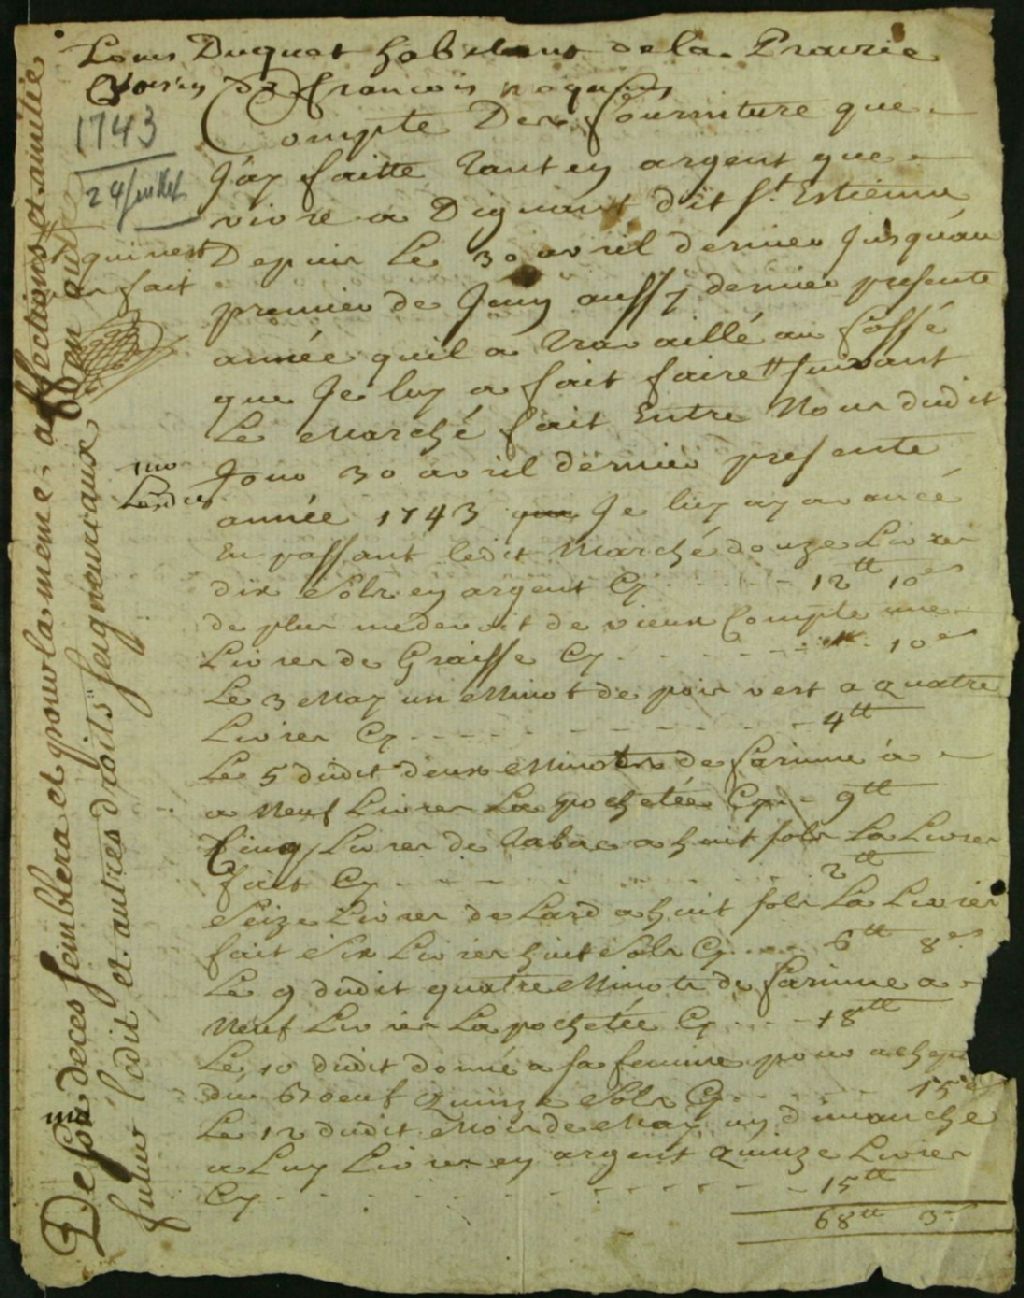 Louis Duquet habitant de la Prairie
Voisin de françois
1743
24 Juillet
Compte Des fourniture que
J'ay faitte tant en argent que
vivre a Dignant dit St Estienne
Depuis Le 30 avril dernier Jusqu'au
premier de Juin aussy dernier presente
année quil a travaillé au fossé
que Je luy a fait faire suivant
Le Marché fait Entre Nous dudit
Jour 30 avril dernier presente
année 1743 Je luy ay avancé
En passant ledit Marché douze Livres
dix sols en argent Cy - - - - 12tt 10s
de plus me devoit de vieux Compte une
Livres de Graisse Cy - - - - 10s
Le 3 May un Minot de pois vert a quatre
Livres Cy - - - - - - 4tt
Le 5 dudit deux Minots de farinne à
a Neuf Livres La pochetée Cy - 9tt
Cinq Livres de Tabac a huit sols La Livres
fait Cy - - - - - 2tt
Seize Livres de Lard a huit sols La Livres
fait Six Livres huit Sols Cy - - - 6tt 8s
Le 9 dudit quatre Minots de farinne a
Neuf Livres La pochetée Cy - - - 18tt
Le 10 dudit donné a sa femme pour achepter
du Boeuf Quinze Sols Cy - - - - 15s
Le 12 dudit Mois de May un dimanche
a Luy Livres en argent Quinze Livres
Cy - - - - - - - - 15tt
68tt 3s
qui n'est
fait
mo
De son deces semblera et pour la meme affections et amitié
futur Ledit et autres droits seigneuriaux